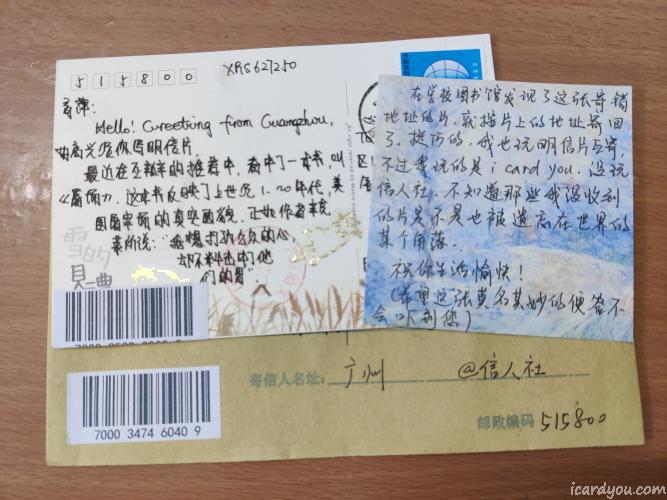 515800
XRS627250
Hello! Gureeting from Guangzhou,
很高兴给你写明信片.
最近在豆瓣的推荐中,看中了一本书,叫
《屠场》. 这本书反映了上世纪1.20年代,美
国屠宰场的真实面貌,正如作者辛克
莱所说:"我想打动公众的心,
却不料击中他
们的胃"
雪的
中国邮政
在学校图书馆发现了这张寄错
地址的片,就按片上的地址寄回
了. 挺巧的,我也玩明信片互寄,
不过我玩的是 i card you,没玩
信人社. 不知道那些我没收到
的片是不是也被遗忘在世界的
某个角落.
祝你生活愉快!
(希望这张莫名其妙的便签不
会吓到您)
寄信人名址: 广州 @信人社
7000 3474 6040 9
邮政编码 515800
icardyou.com